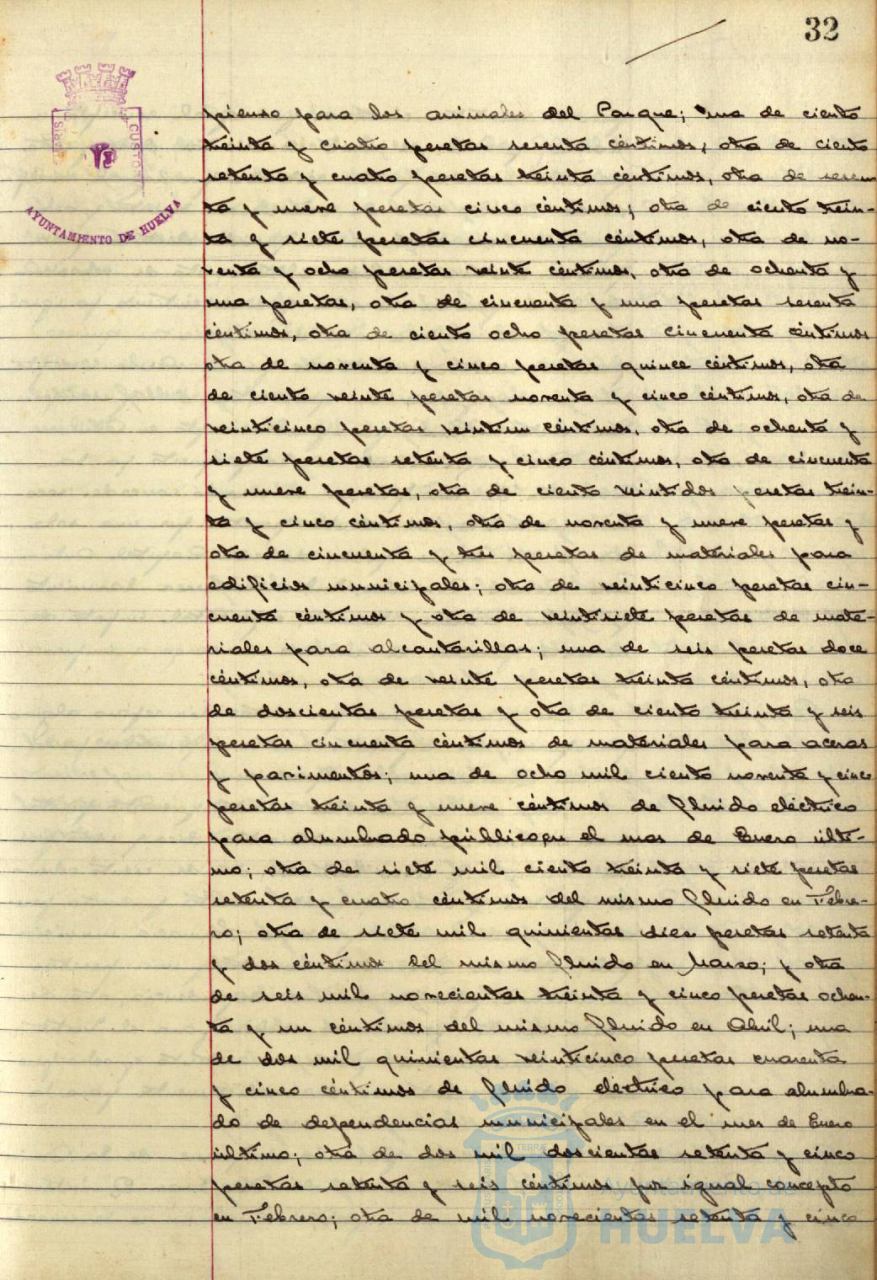 32
AYUNTAMIENTO DE HUELVA
pienso para los animales del Parque; una de ciento
treinta y cuatro pesetas sesenta céntimos, otra de ciento
setenta y cuatro pesetas treinta céntimos, otra de sesen
ta y nueve pesetas cinco céntimos; otra de ciento trein-
ta y siete pesetas cincuenta céntimos, otra de no-
venta y ocho pesetas veinte céntimos, otra de ochenta y
una pesetas, otra de cincuenta y una pesetas sesenta
céntimos, otra de ciento ocho pesetas cincuenta céntimos
otra de noventa y cinco pesetas quince céntimos, otra
de ciento veinte pesetas noventa y cinco céntimos, otra de
veinticinco pesetas veintiun céntimos, otra de ochenta y
siete pesetas setenta y cinco céntimos, otra de cincuenta
y nueve pesetas, otra de ciento veintidos pesetas trein-
ta y cinco céntimos, otra de noventa y nueve pesetas y
otra de cincuenta y tres pesetas de materiales para
edificios municipales; otra de veinticinco pesetas cin-
cuenta céntimos y otra de veintisiete pesetas de mate-
riales para alcantarillas; una de seis pesetas doce
céntimos, otra de veinte pesetas treinta céntimos, otra
de doscientas pesetas y otra de ciento treinta y seis
pesetas cincuenta céntimos de materiales para aceras
y pavimentos; una de ocho mil ciento noventa y cinco
pesetas treinta y nueve céntimos de fluido eléctrico
para alumbrado público en el mes de Enero últi-
mo; otra de siete mil ciento treinta y siete pesetas
setenta y cuatro céntimos del mismo fluido en Febre-
ro; otra de siete mil quinientas diez pesetas setenta
y dos céntimos del mismo fluido en Marzo; y otra
de seis mil novecientas treinta y cinco pesetas ochen-
ta y un céntimos del mismo fluido en Abril; una
de dos mil quinientas veinticinco pesetas cuarenta
y cinco céntimos de fluido eléctrico para alumbra-
do de dependencias municipales en el mes de Enero
último; otra de dos mil doscientas setenta y cinco
pesetas setenta y seis céntimos por igual concepto
en Febrero; otra de mil novecientas setenta y cinco
Ayuntamiento de
HUELVA